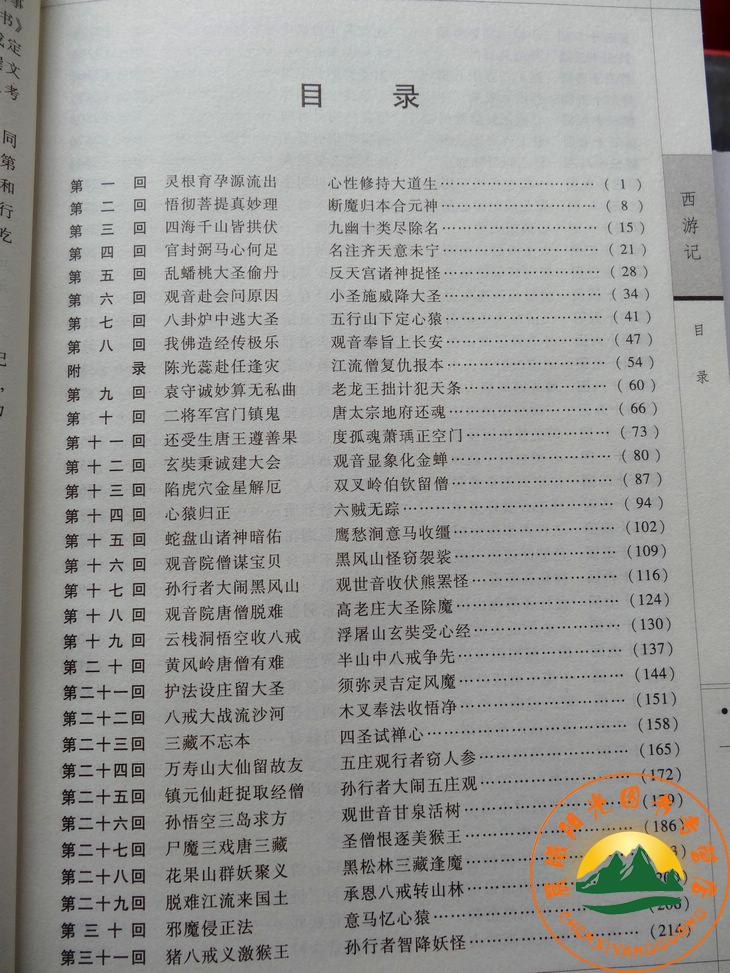 目 录
第一回 灵根育孕源流出 心性修持大道生……（1）
第二回 悟彻菩提真妙理 断魔归本合元神……（8）
第三回 四海千山皆拱伏 九幽十类尽除名……（15）
第四回 官封弼马心何足 名注齐天意未宁……（21）
第五回 乱蟠桃大圣偷丹 反天宫诸神捉怪……（28）
第六回 观音赴会问原因 小圣施威降大圣……（34）
第七回 八卦炉中逃大圣 五行山下定心猿……（41）
第八回 我佛造经传极乐 观音奉旨上长安……（47）
附录 陈光蕊赴任逢灾 江流僧复仇报本……（54）
第九回 袁守诚妙算无私曲 老龙王拙计犯天条……（60）
第十回 二将军宫门镇鬼 唐太宗地府还魂……（66）
第十一回 还受生唐王遵善果 度孤魂萧瑀正空门……（73）
第十二回 玄奘秉诚建大会 观音显象化金蝉……（80）
第十三回 陷虎穴金星解厄 双叉岭伯钦留僧……（87）
第十四回 心猿归正 六贼无踪……（94）
第十五回 蛇盘山诸神暗佑 鹰愁涧意马收缰……（102）
第十六回 观音院僧谋宝贝 黑风山怪窃袈裟……（109）
第十七回 孙行者大闹黑风山 观世音收伏熊罴怪……（116）
第十八回 观音院唐僧脱难 高老庄大圣除魔……（124）
第十九回 云栈洞悟空收八戒 浮屠山玄奘受心经……（130）
第二十回 黄风岭唐僧有难 半山中八戒争先……（137）
第二十一回 护法设庄留大圣 须弥灵吉定风魔……（144）
第二十二回 八戒大战流沙河 木叉奉法收悟净……（151）
第二十三回 三藏不忘本 四圣试禅心……（158）
第二十四回 万寿山大仙留故友 五庄观行者窃人参……（165）
第二十五回 镇元仙赶捉取经僧 孙行者大闹五庄观……（172）
第二十六回 孙悟空三岛求方 观世音甘泉活树……
第二十七回 尸魔三戏唐三藏 圣僧恨逐美猴王……（186）
第二十八回 花果山群妖聚义 黑松林三藏逢魔……
第二十九回 脱难江流来国土 承恩八戒转山林……
第三十回 邪魔侵正法 意马忆心猿……
第三十一回 猪八戒义激猴王 孙行者智降妖怪……（214）
西游记
目录
书》
定
文
考
同
第
和
行
吃
CHENXIYANGGUANG